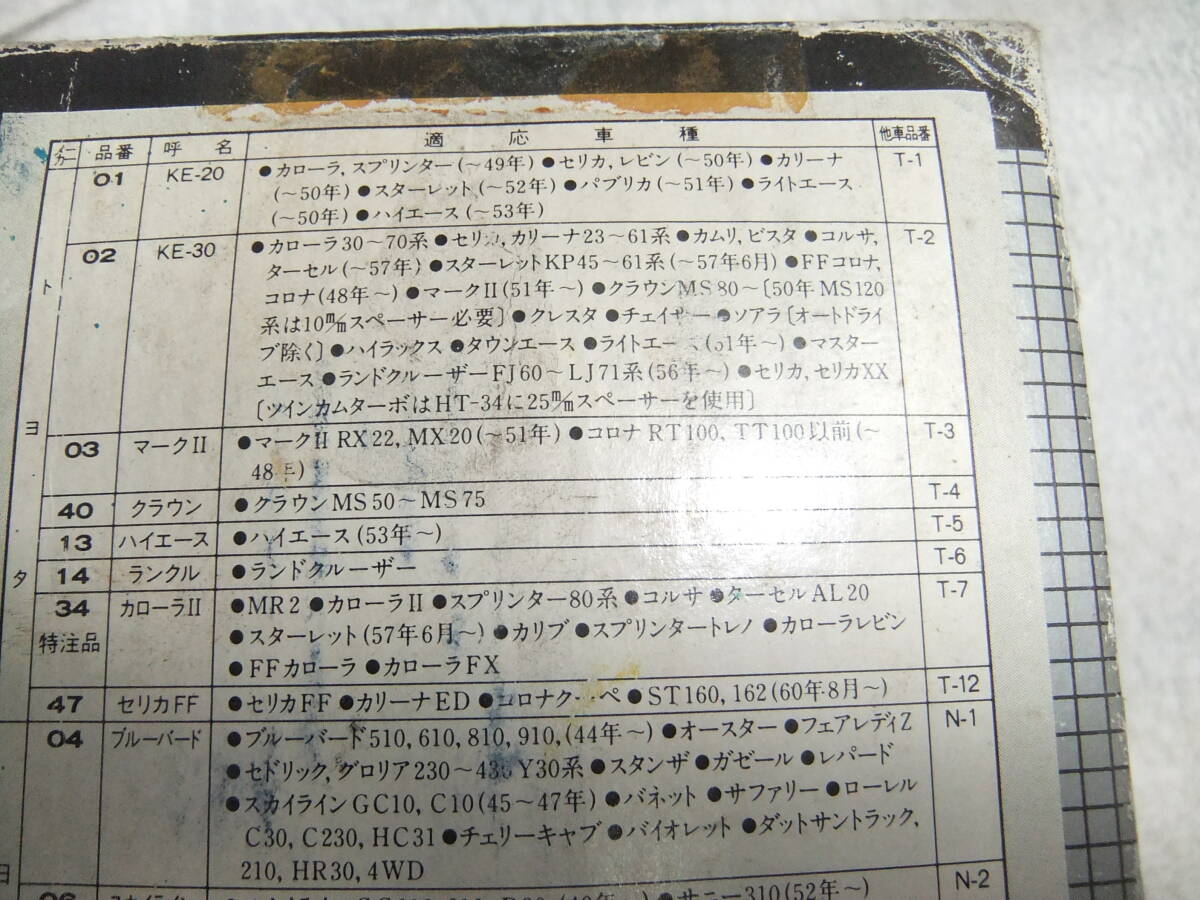 品番 呼名 適応車種 他車品番
01 KE-20 ●カローラ, スプリンター(〜49年) ●セリカ, レビン(〜50年) ●カリーナ T-1
(〜50年) ●スターレット(〜52年) ●パブリカ(〜51年) ●ライトエース
(〜50年) ●ハイエース(〜53年)
02 KE-30 ●カローラ30〜70系 ●セリカ, カリーナ23〜61系 ●カムリ, ビスタ ●コルサ, T-2
ターセル(〜57年) ●スターレットKP45〜61系(〜57年6月) ●FFコロナ,
コロナ(48年〜) ●マークII(51年〜) ●クラウンMS80〜〔50年MS120
系は10m/mスペーサー必要〕 ●クレスタ ●チェイサー ●ソアラ〔オートドライ
ブ除く〕 ●ハイラックス ●タウンエース ●ライトエース(51年〜) ●マスター
エース ●ランドクルーザーFJ60〜LJ71系(56年〜) ●セリカ, セリカXX
〔ツインカムターボはHT-34に25m/mスペーサーを使用〕
03 マークII ●マークII RX22, MX20(〜51年) ●コロナRT100, TT100以前(〜 T-3
48年)
40 クラウン ●クラウンMS50〜MS75 T-4
13 ハイエース ●ハイエース(53年〜) T-5
14 ランクル ●ランドクルーザー T-6
34 カローラII ●MR2 ●カローラII ●スプリンター80系 ●コルサ ●ターセルAL20 T-7
特注品 ●スターレット(57年6月〜) ●カリブ ●スプリンタートレノ ●カローラレビン
●FFカローラ ●カローラFX
47 セリカFF ●セリカFF ●カリーナED ●コロナクーペ ●ST160, 162(60年8月〜) T-12
04 ブルーバード ●ブルーバード510, 610, 810, 910, (44年〜) ●オースター ●フェアレディZ N-1
●セドリック, グロリア230〜430 Y30系 ●スタンザ ●ガゼール ●レパード
●スカイラインGC10, C10(45〜47年) ●バネット ●サファリー ●ローレル
C30, C230, HC31 ●チェリーキャブ ●バイオレット ●ダットサントラック,
210, HR30, 4WD
06 ●サニー310(52年〜) N-2
トヨタ
日